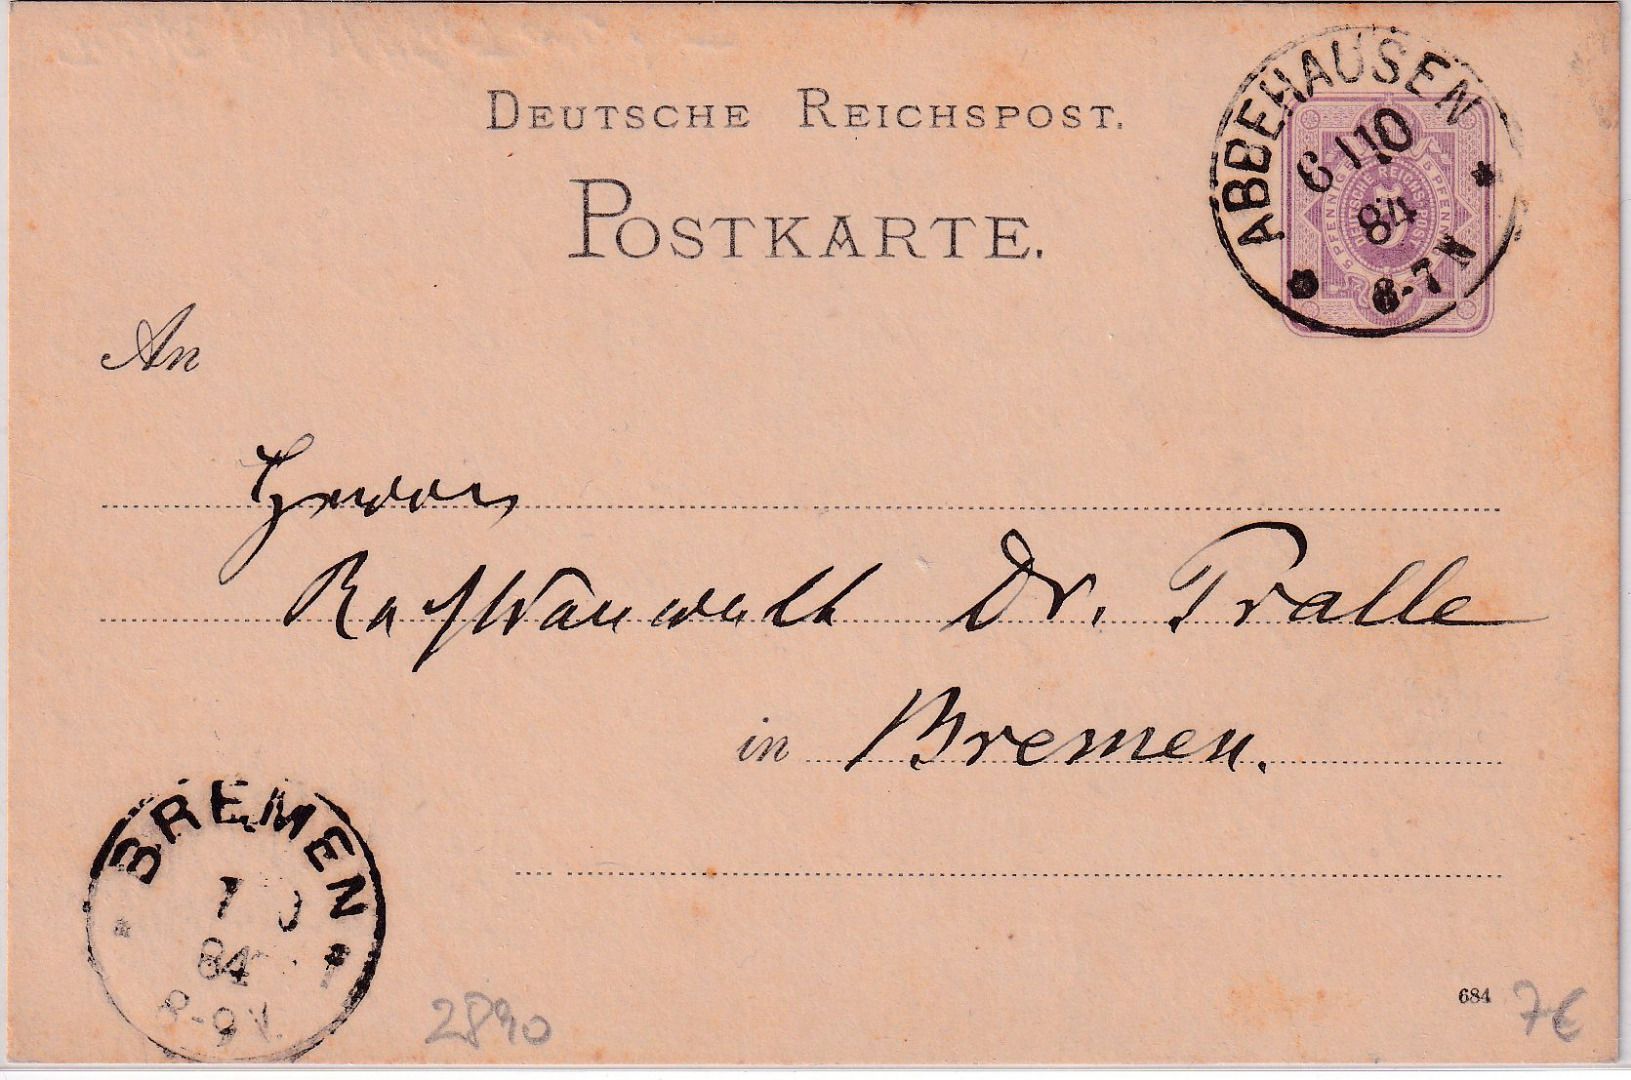 DEUTSCHE REICHSPOST.
POSTKARTE.
ABBEHAUSEN
6 / 10
84
6-7 N
An
Herrn
Rechtsanwalt Dr. Tralle
in Bremen.
BREMEN
7 10
84
8-9 V.
2890
684
7€